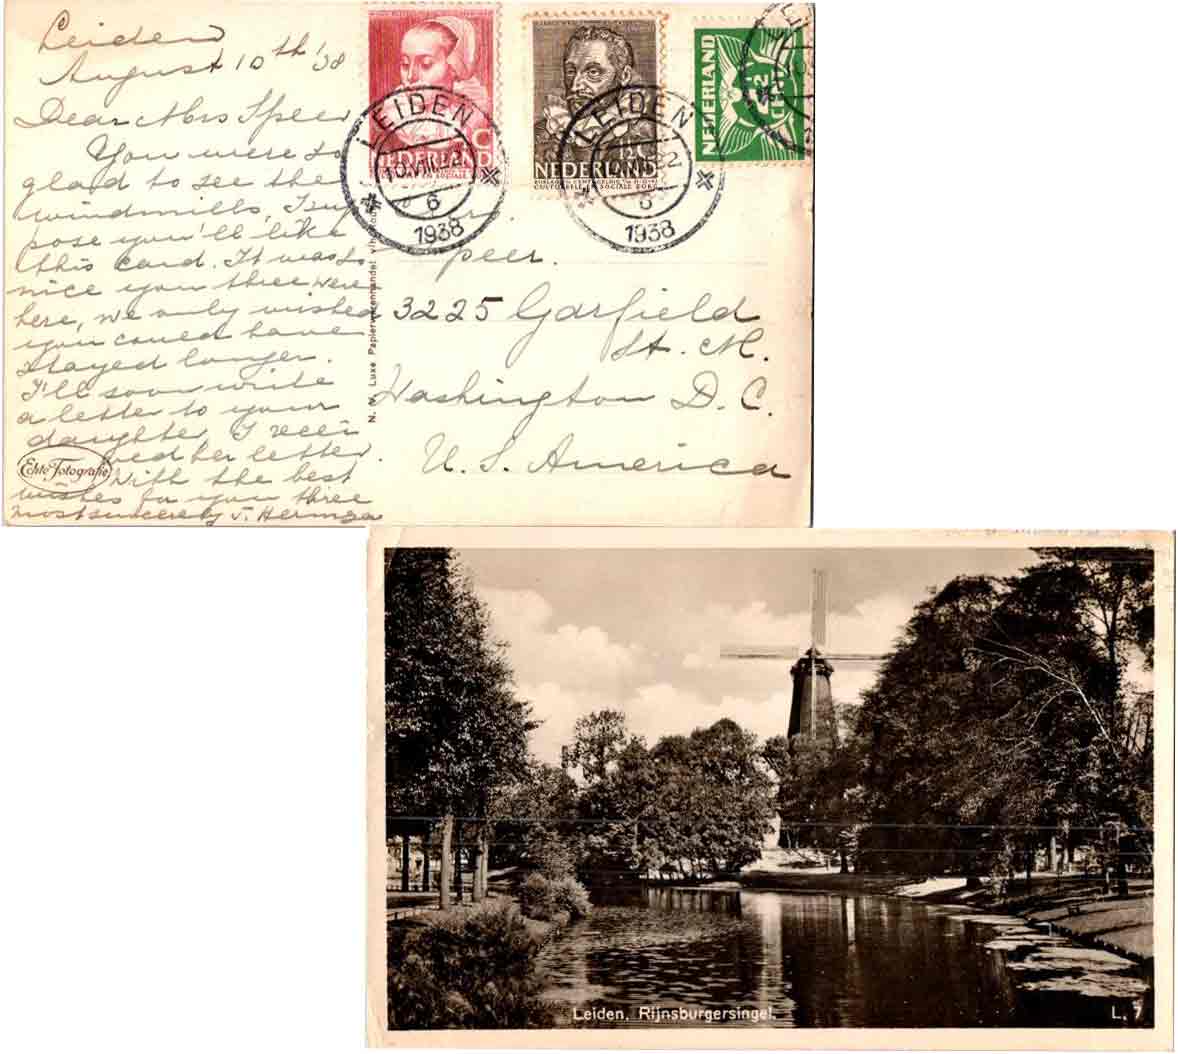 Leiden
August 10th '38
Dear Mrs Speer
You were so
glad to see the
windmills, I sup
pose you'll like
this card. It was so
nice you three were
here, we only wished
you could have
stayed longer.
I'll soon write
a letter to your
daughter, I recei
ved her letter.
With the best
wishes for you three
most sincerely J. Heringa
Echte Fotografie
N. V. Luxe Papierwarenhandel v/h
NEDERLAND
LEIDEN
10.VIII.
6
1938
NEDERLAND
CULTURELE EN SOCIALE ZORG
LEIDEN
6
1938
NEDERLAND
CENT
Mrs.
Speer.
3225 Garfield
St. N.
Washington D. C.
U. S. America
Leiden, Rijnsburgersingel.
L. 7